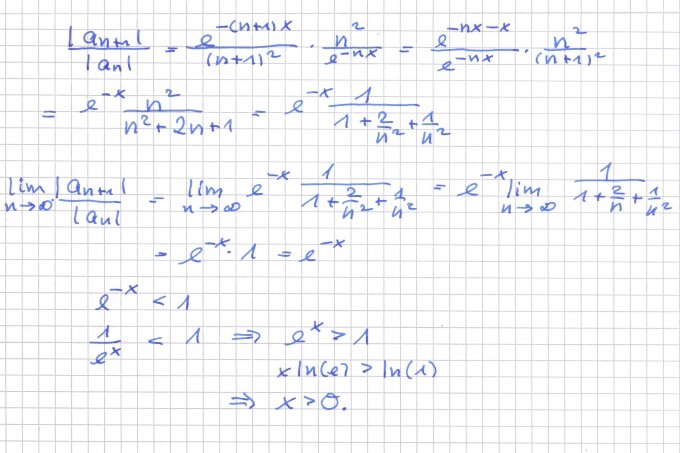 |aₙ₊₁| / |aₙ| = e^(-(n+1)x) / (n+1)² · n² / e^(-nx) = e^(-nx-x) / e^(-nx) · n² / (n+1)²
= e^(-x) n² / (n²+2n+1) = e^(-x) 1 / (1 + 2/n² + 1/n²)
lim n→∞ |aₙ₊₁| / |aₙ| = lim n→∞ e^(-x) 1 / (1 + 2/n² + 1/n²) = e^(-x) lim n→∞ 1 / (1 + 2/n + 1/n²)
= e^(-x) · 1 = e^(-x)
e^(-x) < 1
1 / e^x < 1 ⇒ e^x > 1
x ln(e) > ln(1)
⇒ x > 0.